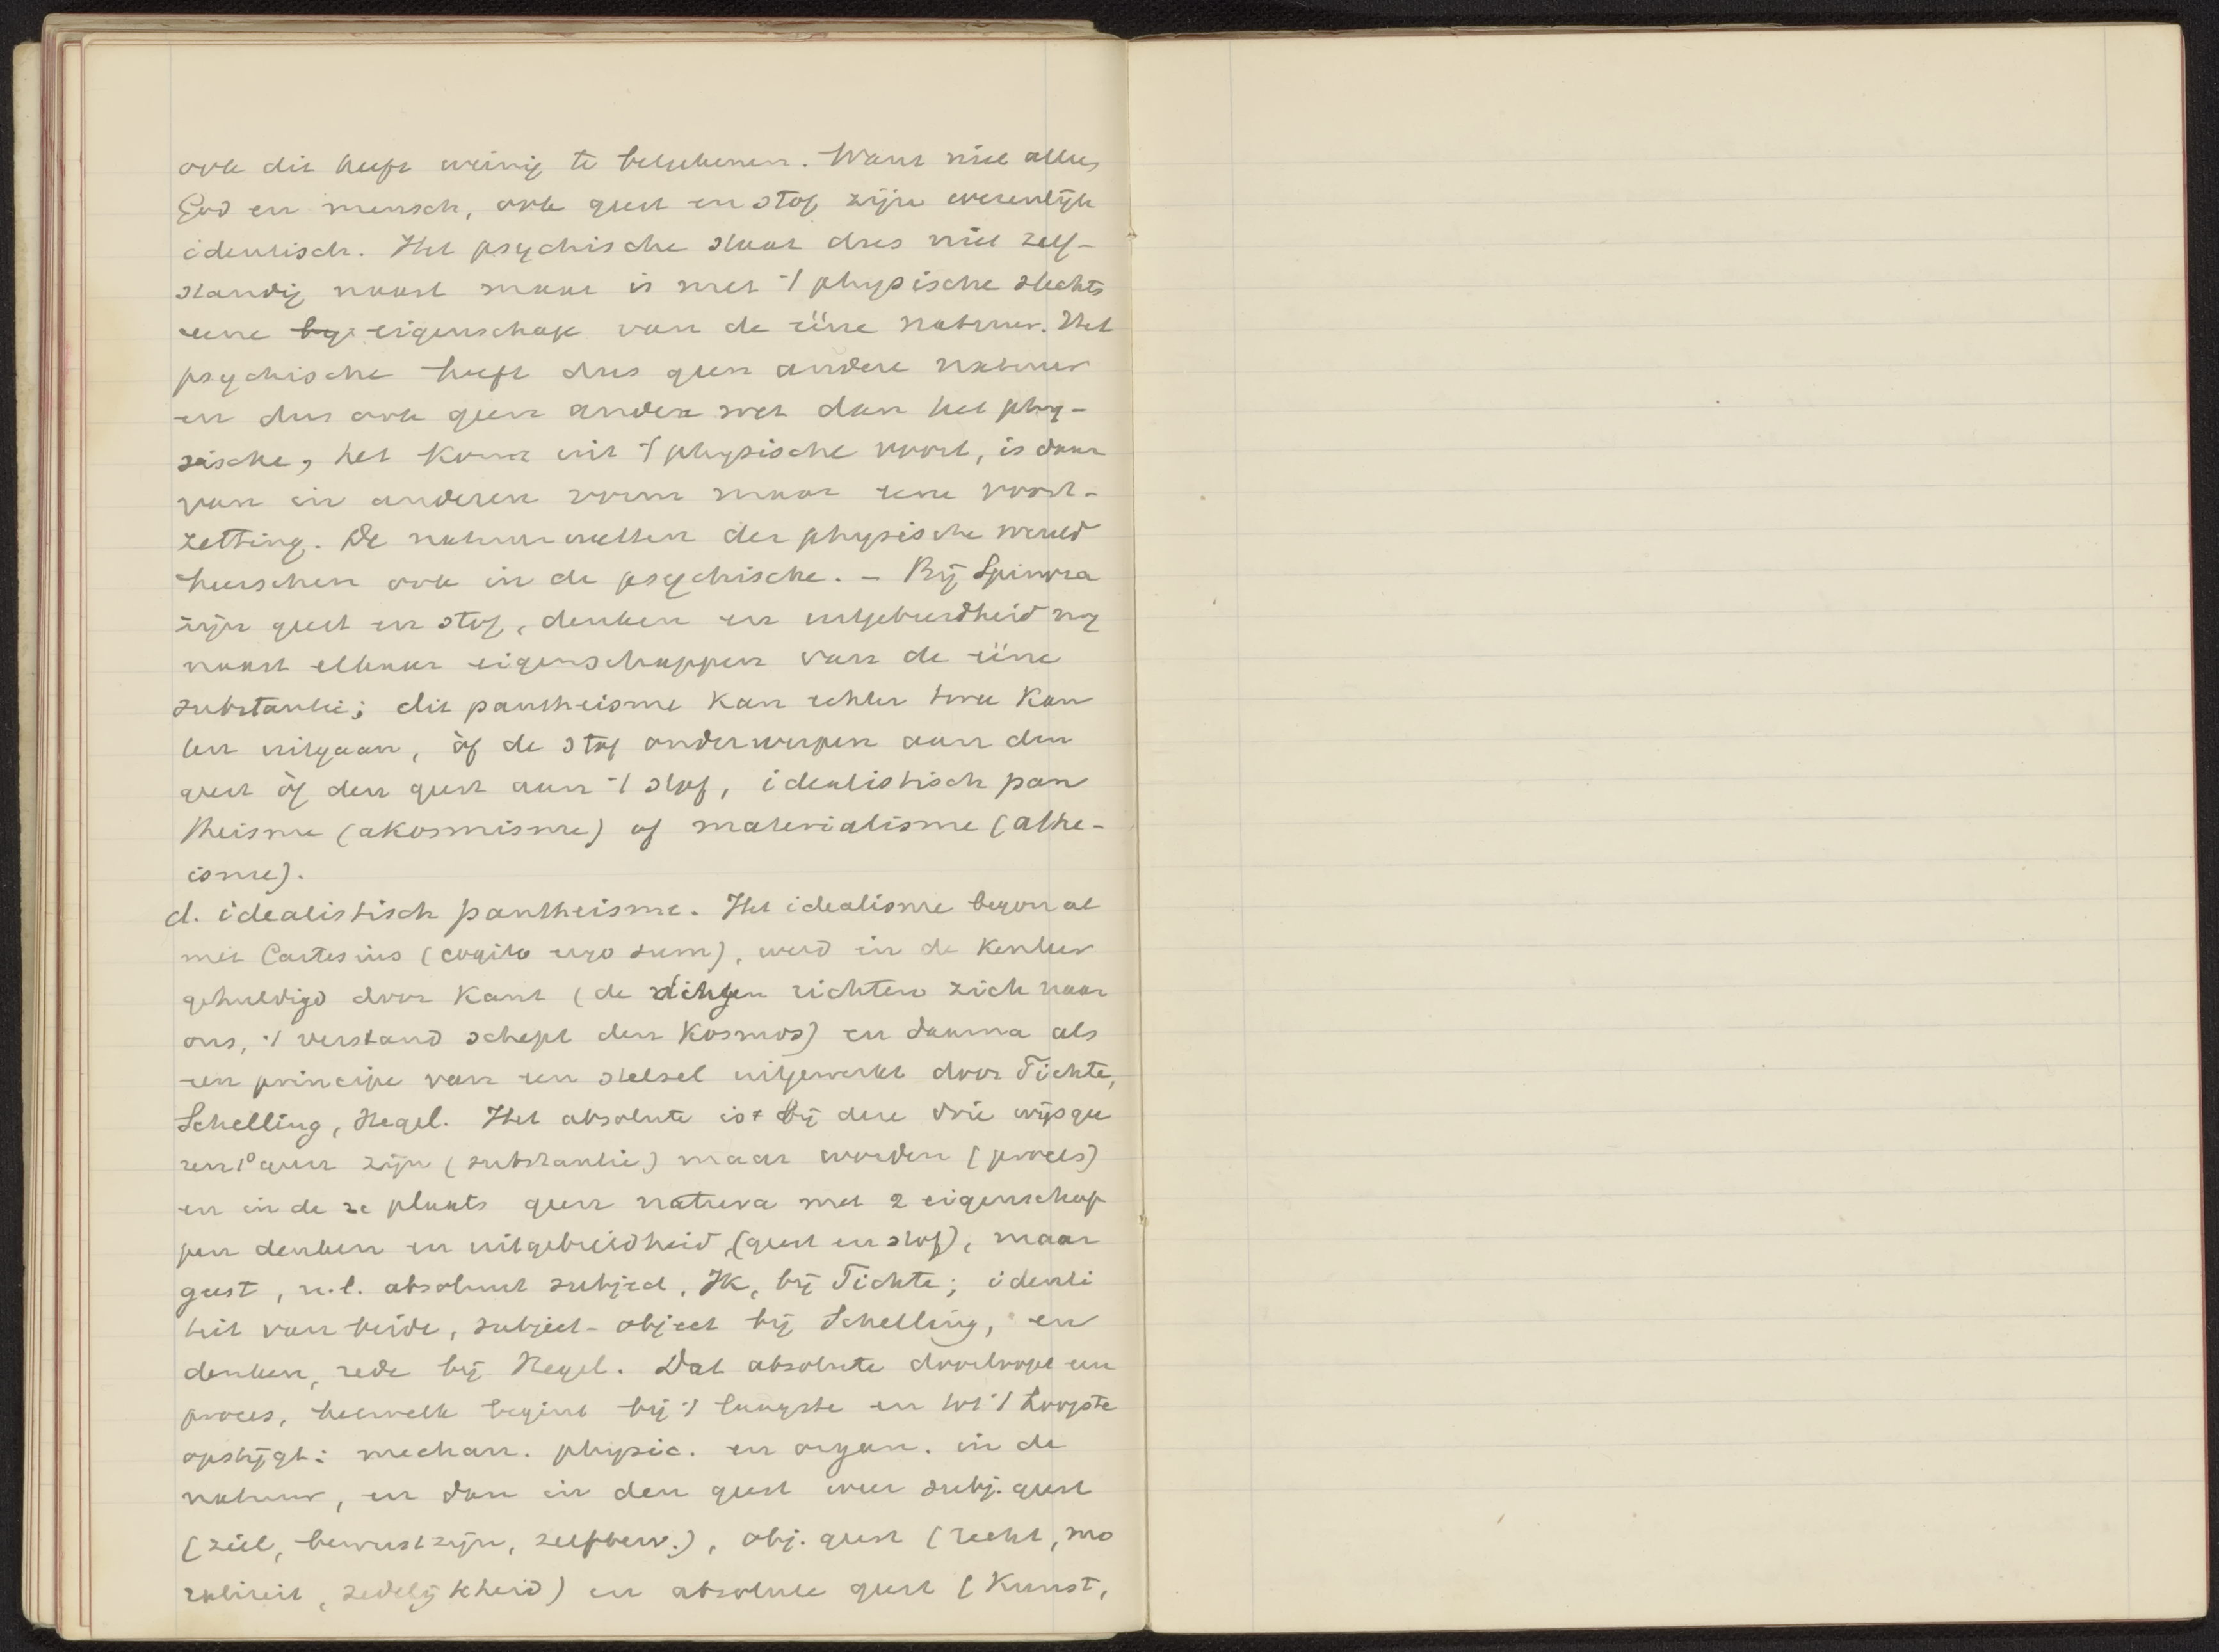 ook dit heeft weinig te beteekenen. Want niet alles,
God en mensch, ook geest en stof zijn wezenlijk
identisch. Het psychische staat dus niet zelf-
standig naast maar is met 't physische slechts
eene eigenschap van de ééne natuur. Het
psychische heeft dus geen andere natuur
en dus ook geen andere wet dan het phy-
sische, het komt uit 't physische voort, is daar
van in anderen vorm maar eene voort-
zetting. De natuurwetten der physische wereld
heerschen ook in de psychische. - Bij Spinoza
zijn geest en stof, denken en uitgebreidheid nog
naast elkaar eigenschappen van de ééne
substantie; dit pantheisme kan echter twee kan
ten uitgaan, òf de stof onderwerpen aan den
geest òf den geest aan 't stof, idealistisch pan
theisme (akosmisme) of materialisme (athe-
isme).
d. idealistisch pantheisme. Het idealisme begon al
met Cartesius (cogito ergo sum), werd in de kenleer
gehuldigd door Kant (de dingen richten zich naar
ons, 't verstand schept den kosmos) en daarna als
een principe van een stelsel uitgewerkt door Fichte,
Schelling, Hegel. Het absolute is bij deze drie wijsgee
ren 1° geen zijn (substantie) maar worden (proces)
en in de 2e plaats geen natura met 2 eigenschap
pen denken en uitgebreidheid, (geest en stof), maar
geest, n.l. absoluut subject, Ik, bij Fichte; identi
teit van beide, subject-object bij Schelling, en
denken, rede bij Hegel. Dat absolute doorloopt een
proces, hetwelk begint bij 't laagste en tot 't hoogste
opstijgt: mechan. physic. en organ. in de
natuur, en dan in den geest weer subj. geest
(ziel, bewustzijn, zelfbew.), obj. geest (recht, mo
raliteit, zedelijkheid) en absolute geest (Kunst,